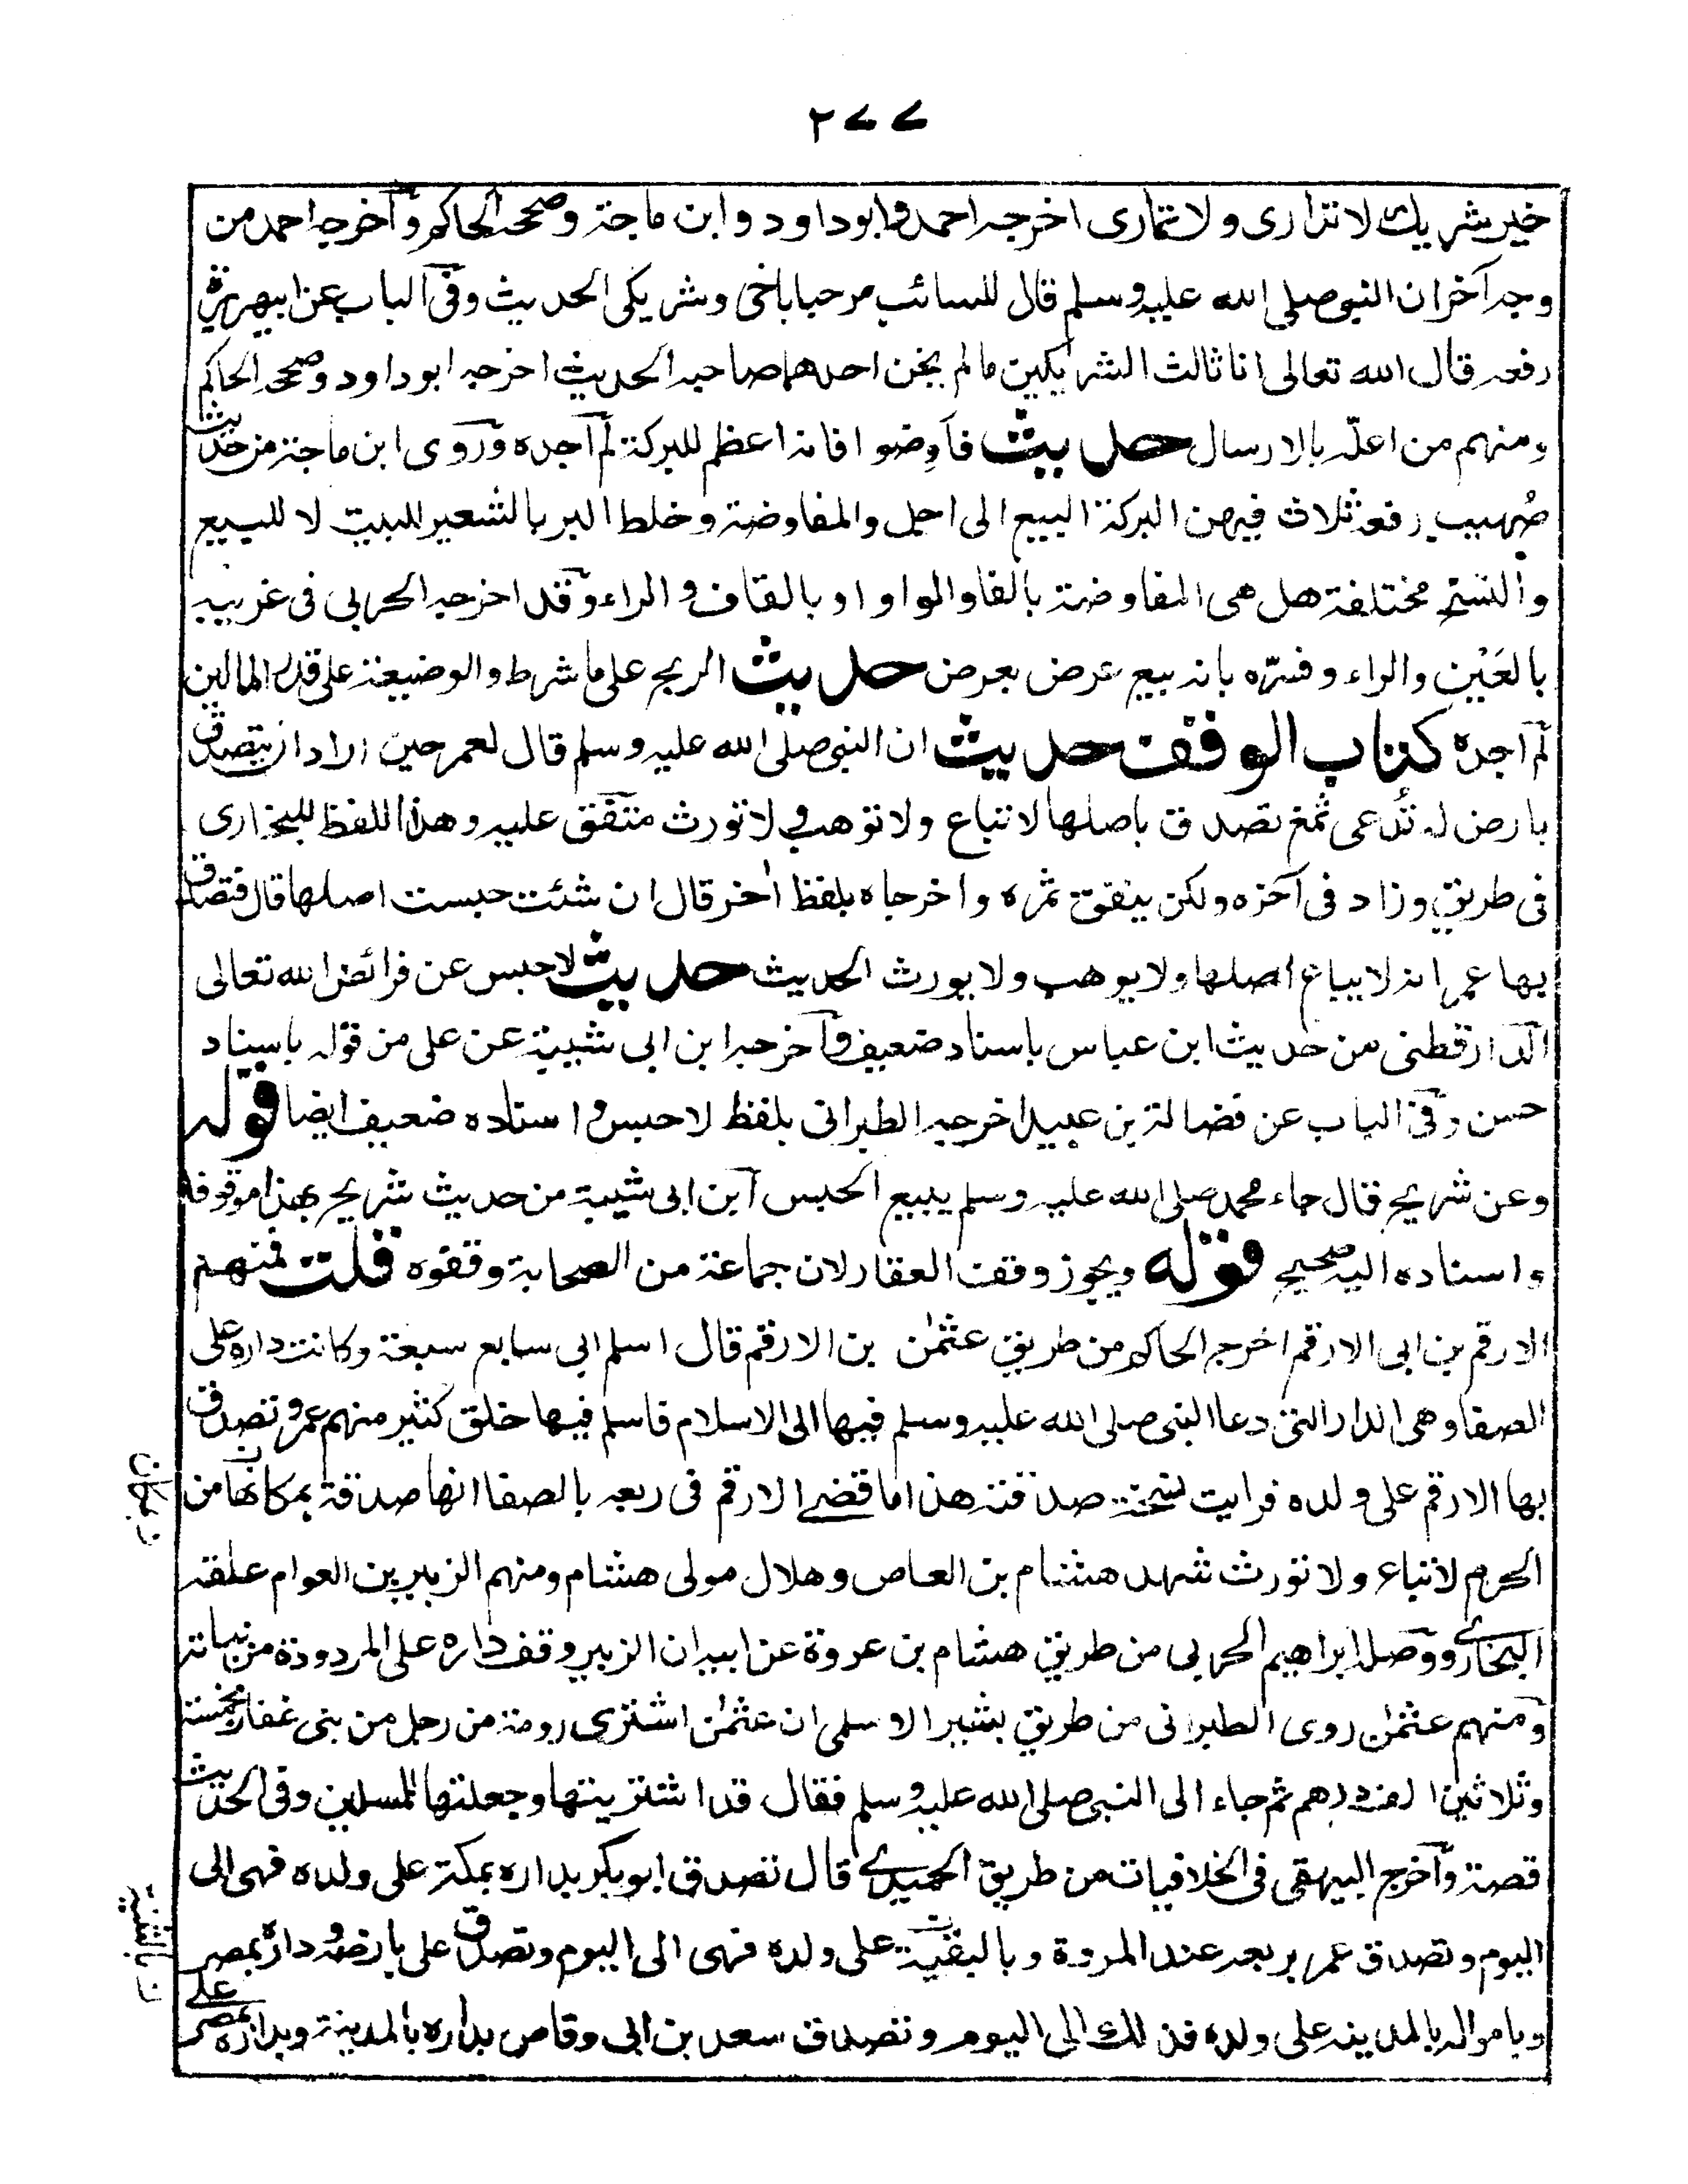 ٢٧٧
خير شريك لا تدارى ولا تمارى اخرجه احمد وابوداود وابن ماجة وصححه الحاكم وآخرجه احمد من
وجه آخر ان النبى صلى الله عليه وسلم قال للسائب مرحبا باخى وشريكى الحديث وفى الباب عن ابيهريرة
رفعه قال الله تعالى انا ثالث الشريكين ما لم يخن احدهما صاحبه الحديث اخرجه ابوداود وصححه الحاكم
ومنهم من اعلّه بالارسال حديث فاوضوا فانه اعظم للبركة لم آجده وروى ابن ماجة من حديث
صُهيب رفعه ثلاث فيهن البركة البيع الى اجل والمفاوضة وخلط البر بالشعير للبيت لا للبيع
والنسخ مختلفة هل هى المفاوضة بالفا والواو او بالقاف والراء وقد اخرجه الحربى فى غريبه
بالعَيْن والراء وفسّره بانه بيع عرض بعرض حديث الربح على ما شرط والوضيعة على قدر المالين
لم آجده كتاب الوقف حديث ان النبى صلى الله عليه وسلم قال لعمر حين اراد ان يتصدق
بارض له تُدعى ثمغ تصدق باصلها لا تباع ولا توهب ولا تورث متفق عليه وهذا اللفظ للبخارى
فى طريق وزاد فى آخره ولكن ينفق ثمره واخرجاه بلفظ اخر قال ان شئت حبست اصلها قال فتصدق
بها عمر انه لا يباع اصلها ولا يوهب ولا يورث الحديث حديث لا حبس عن فرائض الله تعالى
الدارقطنى من حديث ابن عباس باسناد ضعيف وآخرجه ابن ابى شيبة عن على من قوله باسناد
حسن وفى الباب عن فضالة بن عبيد اخرجه الطبرانى بلفظ لا حبس واسناده ضعيف ايضا قوله
وعن شريح قال جاء محمد صلى الله عليه وسلم يبيع الحبس آبن ابى شيبة من حديث شريح بهذا موقوفا
واسناده اليه صحيح قوله ويجوز وقف العقار لان جماعة من الصحابة وقفوه قلت فمنهم
الارقم بن ابى الارقم اخرجه الحاكم من طريق عثمٰن بن الارقم قال اسلم ابى سابع سبعة وكانت داره على
الصفا وهى الدار التى دعا النبى صلى الله عليه وسلم فيها الى الاسلام فاسلم فيها خلق كثير منهم عمر وتصدق
بها الارقم على ولده فرايت نسخة صدقته هذا ما قضى الارقم فى ربعه بالصفا انها صدقة بمكانها من
الحرم لا تباع ولا تورث شهد هشام بن العاص وهلال مولى هشام ومنهم الزبير بن العوام علقه
البخارى ووصله ابراهيم الحربى من طريق هشام بن عروة عن ابيه ان الزبير وقف داره على المردودة من بناته
ومنهم عثمٰن روى الطبرانى من طريق بشير الاسلمى ان عثمٰن اشترى رومة من رجل من بنى غفار بخمسة
وثلاثين الف درهم ثم جاء الى النبى صلى الله عليه وسلم فقال قد اشتريتها وجعلتها للمسلمين وفى الحديث
قصة وآخرج البيهقى فى الخلافيات من طريق الحميدى قال تصدق ابوبكر بداره بمكة على ولده فهى الى
اليوم وتصدق عمر بربعه عند المروة وبالبقية على ولده فهى الى اليوم وتصدق على بارضه وداره بمصر
وباموالہ بالمدينه على ولده فذلك الى اليوم وتصدق سعد بن ابى وقاص بداره بالمدينة وبداره بمصر على